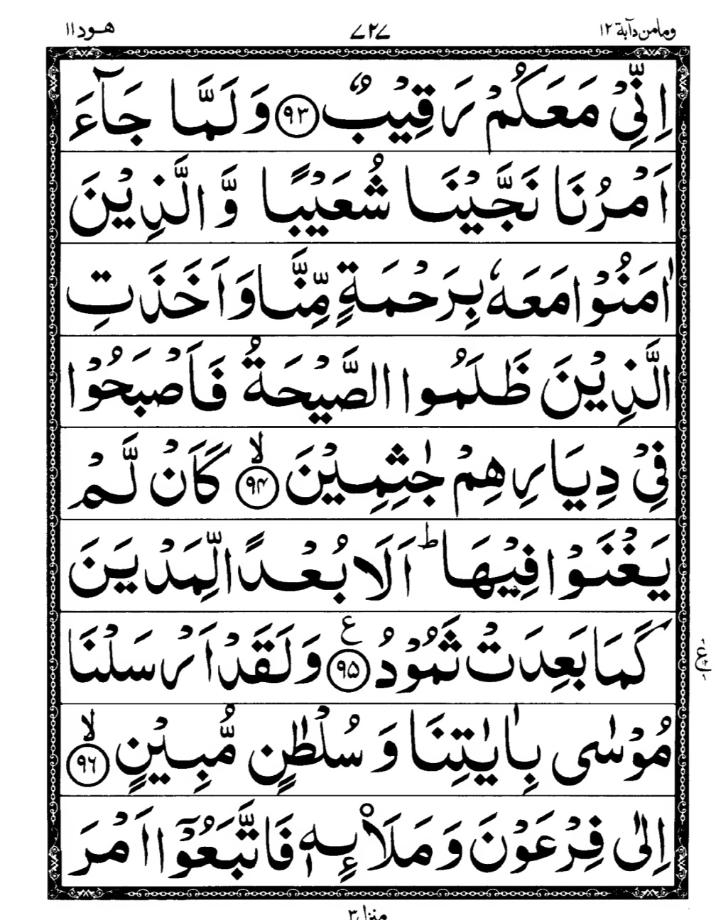 ومامن دآبة ١٢ ٧٢٧ هود ١١
اِنِّیْ مَعَكُمْ رَقِیْبٌ ﴿۹۳﴾ وَلَمَّا جَآءَ
اَمْرُنَا نَجَّیْنَا شُعَیْبًا وَّ الَّذِیْنَ
اٰمَنُوْا مَعَهٗ بِرَحْمَةٍ مِّنَّا وَ اَخَذَتِ
الَّذِیْنَ ظَلَمُوا الصَّیْحَةُ فَاَصْبَحُوْا
فِیْ دِیَارِهِمْ جٰثِمِیْنَ ۙ﴿۹۴﴾ كَاَنْ لَّمْ
یَغْنَوْا فِیْهَا ؕ اَلَا بُعْدًا لِّمَدْیَنَ
كَمَا بَعِدَتْ ثَمُوْدُ ﴿۹۵﴾ع وَلَقَدْ اَرْسَلْنَا
ع
مُوْسٰی بِاٰیٰتِنَا وَ سُلْطٰنٍ مُّبِیْنٍ ۙ﴿۹۶﴾
اِلٰی فِرْعَوْنَ وَ مَلَا۠ئِهٖ فَاتَّبَعُوْۤا اَمْرَ
منزل ٣